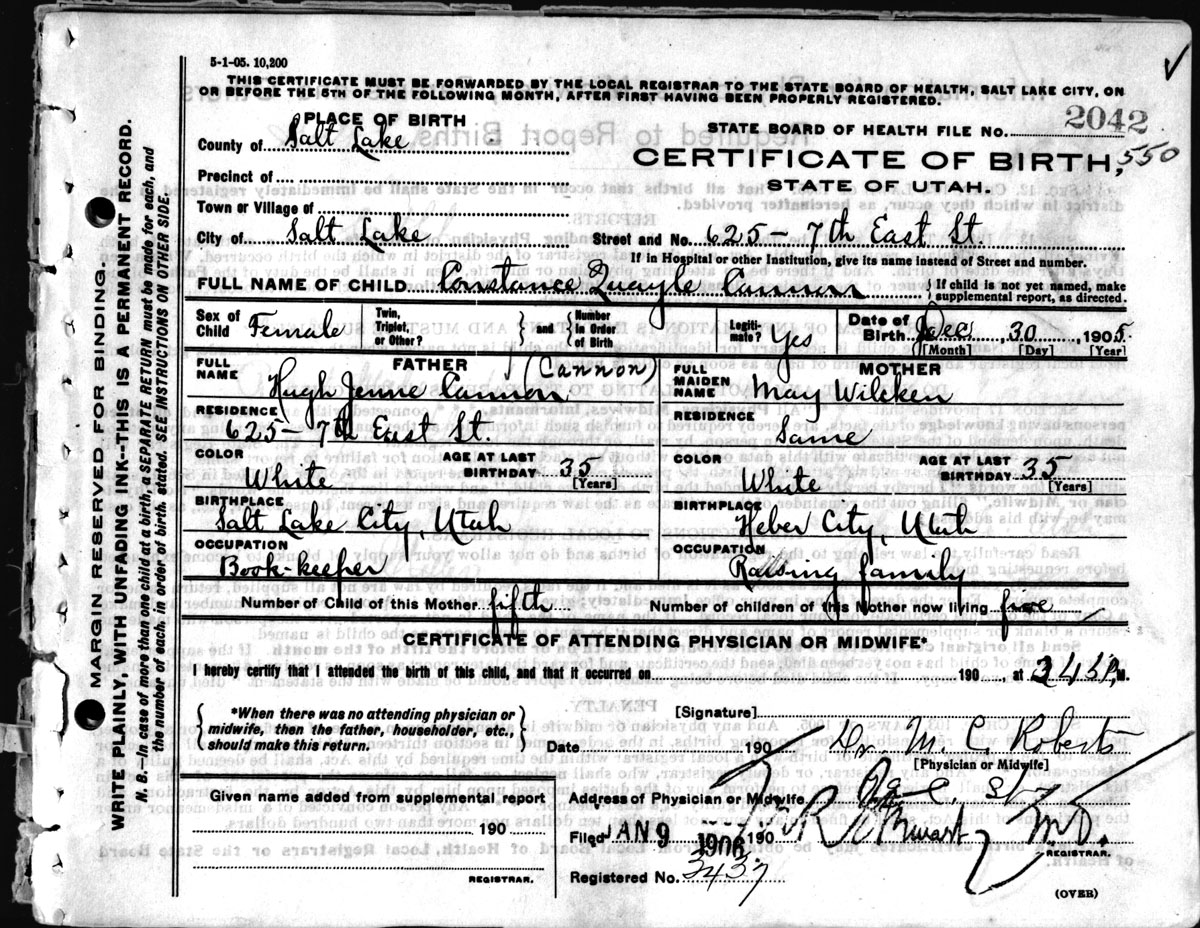 5-1-05. 10,200
THIS CERTIFICATE MUST BE FORWARDED BY THE LOCAL REGISTRAR TO THE STATE BOARD OF HEALTH, SALT LAKE CITY, ON
OR BEFORE THE 5TH OF THE FOLLOWING MONTH, AFTER FIRST HAVING BEEN PROPERLY REGISTERED.
PLACE OF BIRTH
STATE BOARD OF HEALTH FILE NO. 2042
County of Salt Lake
CERTIFICATE OF BIRTH, 550
Precinct of
STATE OF UTAH.
Town or Village of
City of Salt Lake Street and No. 625 - 7th East St.
If in Hospital or other Institution, give its name instead of Street and number.
FULL NAME OF CHILD Constance Quayle Cannon { If child is not yet named, make
supplemental report, as directed.
Sex of Child Female Twin, Triplet, or Other? } and { Number in Order of Birth Legitimate? Yes Date of Birth Dec, 30, 1905
[Month] [Day] [Year]
FATHER (Cannon) MOTHER
FULL NAME Hugh Jenne Cannon FULL MAIDEN NAME May Wilcken
RESIDENCE 625 - 7th East St. RESIDENCE Same
COLOR White AGE AT LAST BIRTHDAY 35 [Years] COLOR White AGE AT LAST BIRTHDAY 35 [Years]
BIRTHPLACE Salt Lake City, Utah BIRTHPLACE Heber City, Utah
OCCUPATION Book-keeper OCCUPATION Raising family
Number of Child of this Mother fifth Number of children of this Mother now living five
CERTIFICATE OF ATTENDING PHYSICIAN OR MIDWIFE*
I hereby certify that I attended the birth of this child, and that it occurred on 190 , at 245 P. M.
{ *When there was no attending physician or
midwife, then the father, householder, etc.,
should make this return. }
[Signature]
Date 190 Dr. M. C. Roberts
[Physician or Midwife]
Given name added from supplemental report
Address of Physician or Midwife
190
Filed JAN 9 1906 190 M.D.
REGISTRAR.
Registered No. 3437
REGISTRAR.
(OVER)
MARGIN RESERVED FOR BINDING.
WRITE PLAINLY, WITH UNFADING INK--THIS IS A PERMANENT RECORD.
N. B.--In case of more than one child at a birth, a SEPARATE RETURN must be made for each, and
the number of each, in order of birth, stated. SEE INSTRUCTIONS ON OTHER SIDE.